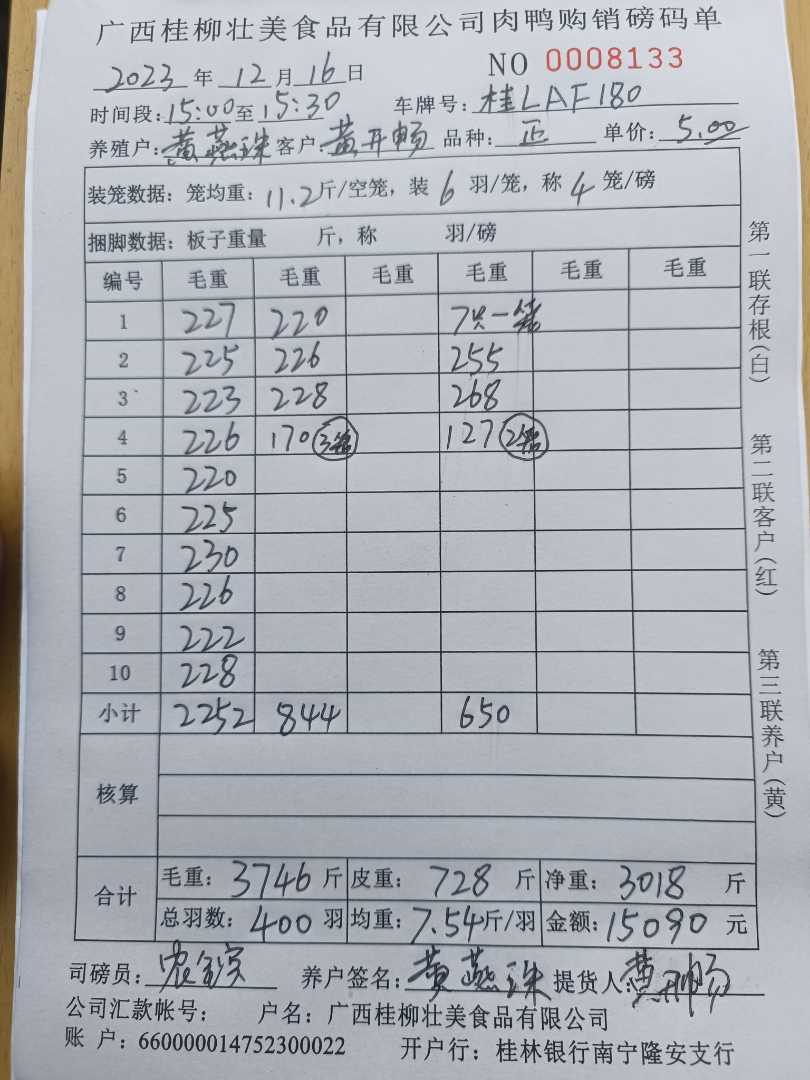 广西桂柳壮美食品有限公司肉鸭购销磅码单
2023 年 12 月 16 日 NO 0008133
时间段: 15:00 至 15:30 车牌号: 桂LAF180
养殖户: 黄燕珠 客户: 黄开畅 品种: 正 单价: 5.00
装笼数据: 笼均重: 11.2 斤/空笼, 装 6 羽/笼, 称 4 笼/磅
捆脚数据: 板子重量 斤, 称 羽/磅
编号 毛重 毛重 毛重 毛重 毛重 毛重
1 227 220 7只一笼
2 225 226 255
3 223 228 268
4 226 170 3笼 127 2笼
5 220
6 225
7 230
8 226
9 222
10 228
小计 2252 844 650
核算
合计 毛重: 3746 斤 皮重: 728 斤 净重: 3018 斤
总羽数: 400 羽 均重: 7.54 斤/羽 金额: 15090 元
司磅员: 养户签名: 黄燕珠 提货人: 黄开畅
公司汇款帐号: 户名: 广西桂柳壮美食品有限公司
账 户: 660000014752300022 开户行: 桂林银行南宁隆安支行
第一联存根(白)
第二联客户(红)
第三联养户(黄)